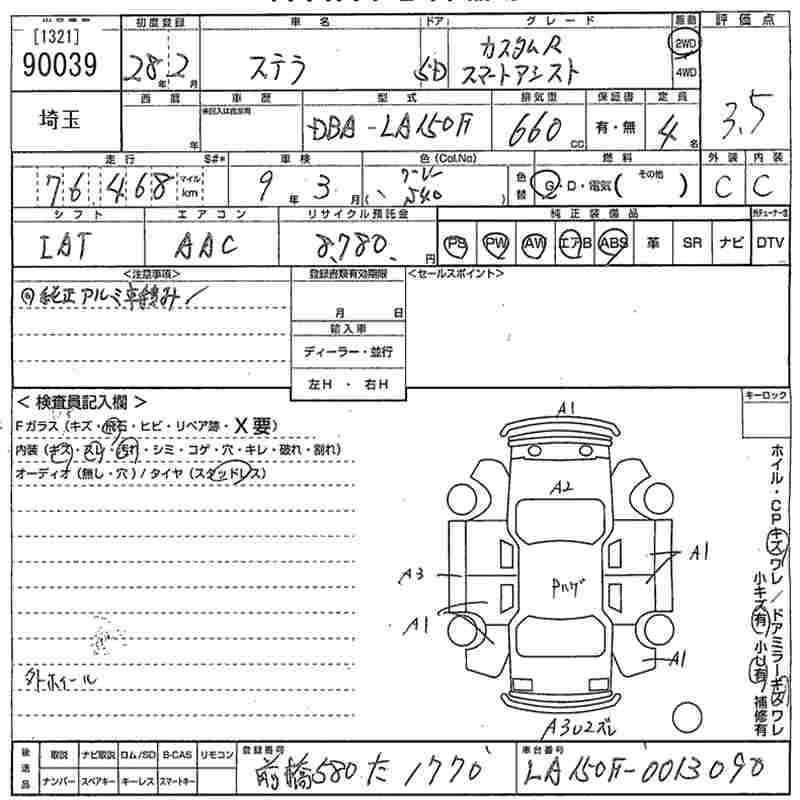 [1321]
90039
埼玉
初度登録
28年 2月
車名
ステラ
ドア
5D
グレード
カスタムR
スマートアシスト
駆動
2WD
4WD
評価点
3.5
西暦
年
車歴
型式
DBA-LA150F
排気量
660 cc
保証書
有・無
定員
4名
走行
S#*
76,468
マイル
km
車検
9年 3月
色(Col.No)
540
色替
燃料
G・D・電気( その他 )
外装
C
内装
C
シフト
IAT
エアコン
AAC
リサイクル預託金
8,780 円
純正装備品
PS PW AW エアB ABS 革 SR ナビ DTV
<注意事項>
純正アルミ車積み
登録書類有効期限
月 日
輸入車
ディーラー・並行
左H ・ 右H
<セールスポイント>
<検査員記入欄>
Fガラス(キズ・飛石・ヒビ・リペア跡・X要)
内装(キズ・スレ・汚れ・シミ・コゲ・穴・キレ・破れ・割れ)
オーディオ(無し・穴)/タイヤ(スタッドレス)
外ホイール
キーロック
A1
A2
A3
A1
Pハゲ
A1
A1
A3U2ズレ
ホイル・CPキズワレ/ドアミラーキズワレ
小キズ有 小U有 補修有
後送品
取説 ナビ取説 ロム/SD B-CAS リモコン
ナンバー スペアキー キーレス スマートキー
登録番号
前橋580た1770
車台番号
LA150F-0013090